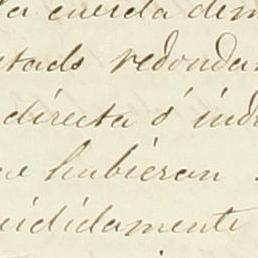 la cuerda dem
stads redonda
directa ó indi
ue hubieran
cididamente